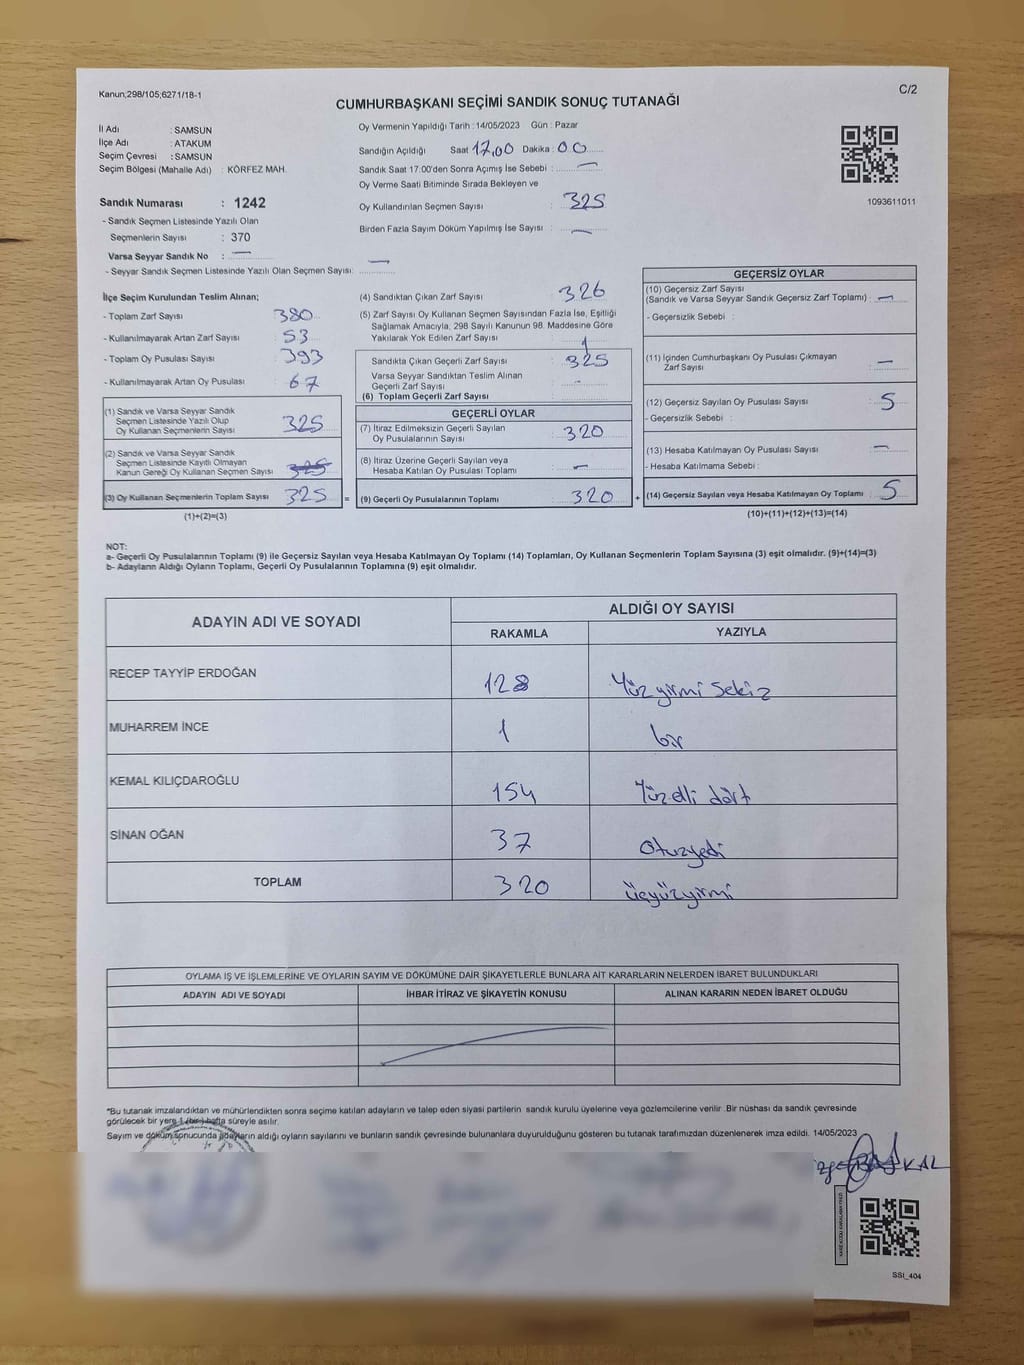 Kanun;298/105;6271/18-1
C/2
CUMHURBAŞKANI SEÇİMİ SANDIK SONUÇ TUTANAĞI
İl Adı : SAMSUN
İlçe Adı : ATAKUM
Seçim Çevresi : SAMSUN
Seçim Bölgesi (Mahalle Adı) : KÖRFEZ MAH.
Sandık Numarası : 1242
- Sandık Seçmen Listesinde Yazılı Olan
Seçmenlerin Sayısı : 370
Varsa Seyyar Sandık No : —
- Seyyar Sandık Seçmen Listesinde Yazılı Olan Seçmen Sayısı: —
Oy Vermenin Yapıldığı Tarih : 14/05/2023 Gün : Pazar
Sandığın Açıldığı Saat 17,00 Dakika : 00
Sandık Saat 17:00'den Sonra Açımış İse Sebebi : —
Oy Verme Saati Bitiminde Sırada Bekleyen ve
Oy Kullandırılan Seçmen Sayısı : 325
Birden Fazla Sayım Döküm Yapılmış İse Sayısı : —
1093611011
İlçe Seçim Kurulundan Teslim Alınan;
- Toplam Zarf Sayısı : 380
- Kullanılmayarak Artan Zarf Sayısı : 53
- Toplam Oy Pusulası Sayısı : 393
- Kullanılmayarak Artan Oy Pusulası : 67
(1) Sandık ve Varsa Seyyar Sandık
Seçmen Listesinde Yazılı Olup
Oy Kullanan Seçmenlerin Sayısı : 325
(2) Sandık ve Varsa Seyyar Sandık
Seçmen Listesinde Kayıtlı Olmayan
Kanun Gereği Oy Kullanan Seçmen Sayısı : 325
(3) Oy Kullanan Seçmenlerin Toplam Sayısı : 325 =
(1)+(2)=(3)
(4) Sandıktan Çıkan Zarf Sayısı : 326
(5) Zarf Sayısı Oy Kullanan Seçmen Sayısından Fazla İse, Eşitliği
Sağlamak Amacıyla, 298 Sayılı Kanunun 98. Maddesine Göre
Yakılarak Yok Edilen Zarf Sayısı : 1
Sandıkta Çıkan Geçerli Zarf Sayısı : 325
Varsa Seyyar Sandıktan Teslim Alınan
Geçerli Zarf Sayısı : -
(6) Toplam Geçerli Zarf Sayısı :
GEÇERLİ OYLAR
(7) İtiraz Edilmeksizin Geçerli Sayılan
Oy Pusulalarının Sayısı : 320
(8) İtiraz Üzerine Geçerli Sayılan veya
Hesaba Katılan Oy Pusulası Toplamı : —
(9) Geçerli Oy Pusulalarının Toplamı : 320 +
GEÇERSİZ OYLAR
(10) Geçersiz Zarf Sayısı
(Sandık ve Varsa Seyyar Sandık Geçersiz Zarf Toplamı) : —
- Geçersizlik Sebebi :
(11) İçinden Cumhurbaşkanı Oy Pusulası Çıkmayan
Zarf Sayısı : —
(12) Geçersiz Sayılan Oy Pusulası Sayısı : 5
- Geçersizlik Sebebi :
(13) Hesaba Katılmayan Oy Pusulası Sayısı : —
- Hesaba Katılmama Sebebi :
(14) Geçersiz Sayılan veya Hesaba Katılmayan Oy Toplamı : 5
(10)+(11)+(12)+(13)=(14)
NOT:
a- Geçerli Oy Pusulalarının Toplamı (9) ile Geçersiz Sayılan veya Hesaba Katılmayan Oy Toplamı (14) Toplamları, Oy Kullanan Seçmenlerin Toplam Sayısına (3) eşit olmalıdır. (9)+(14)=(3)
b- Adayların Aldığı Oyların Toplamı, Geçerli Oy Pusulalarının Toplamına (9) eşit olmalıdır.
ADAYIN ADI VE SOYADI ALDIĞI OY SAYISI
RAKAMLA YAZIYLA
RECEP TAYYİP ERDOĞAN 128 Yüzyirmi sekiz
MUHARREM İNCE 1 bir
KEMAL KILIÇDAROĞLU 154 Yüzelli dört
SİNAN OĞAN 37 Otuzyedi
TOPLAM 320 üçyüzyirmi
OYLAMA İŞ VE İŞLEMLERİNE VE OYLARIN SAYIM VE DÖKÜMÜNE DAİR ŞİKAYETLERLE BUNLARA AİT KARARLARIN NELERDEN İBARET BULUNDUKLARI
ADAYIN ADI VE SOYADI İHBAR İTİRAZ VE ŞİKAYETİN KONUSU ALINAN KARARIN NEDEN İBARET OLDUĞU
*Bu tutanak imzalandıktan ve mühürlendikten sonra seçime katılan adayların ve talep eden siyasi partilerin sandık kurulu üyelerine veya gözlemcilerine verilir .Bir nüshası da sandık çevresinde
görülecek bir yere 1 (bir) hafta süreyle asılır.
Sayım ve döküm sonucunda adayların aldığı oyların sayılarını ve bunların sandık çevresinde bulunanlara duyurulduğunu gösteren bu tutanak tarafımızdan düzenlenerek imza edildi. 14/05/2023
SSI_404